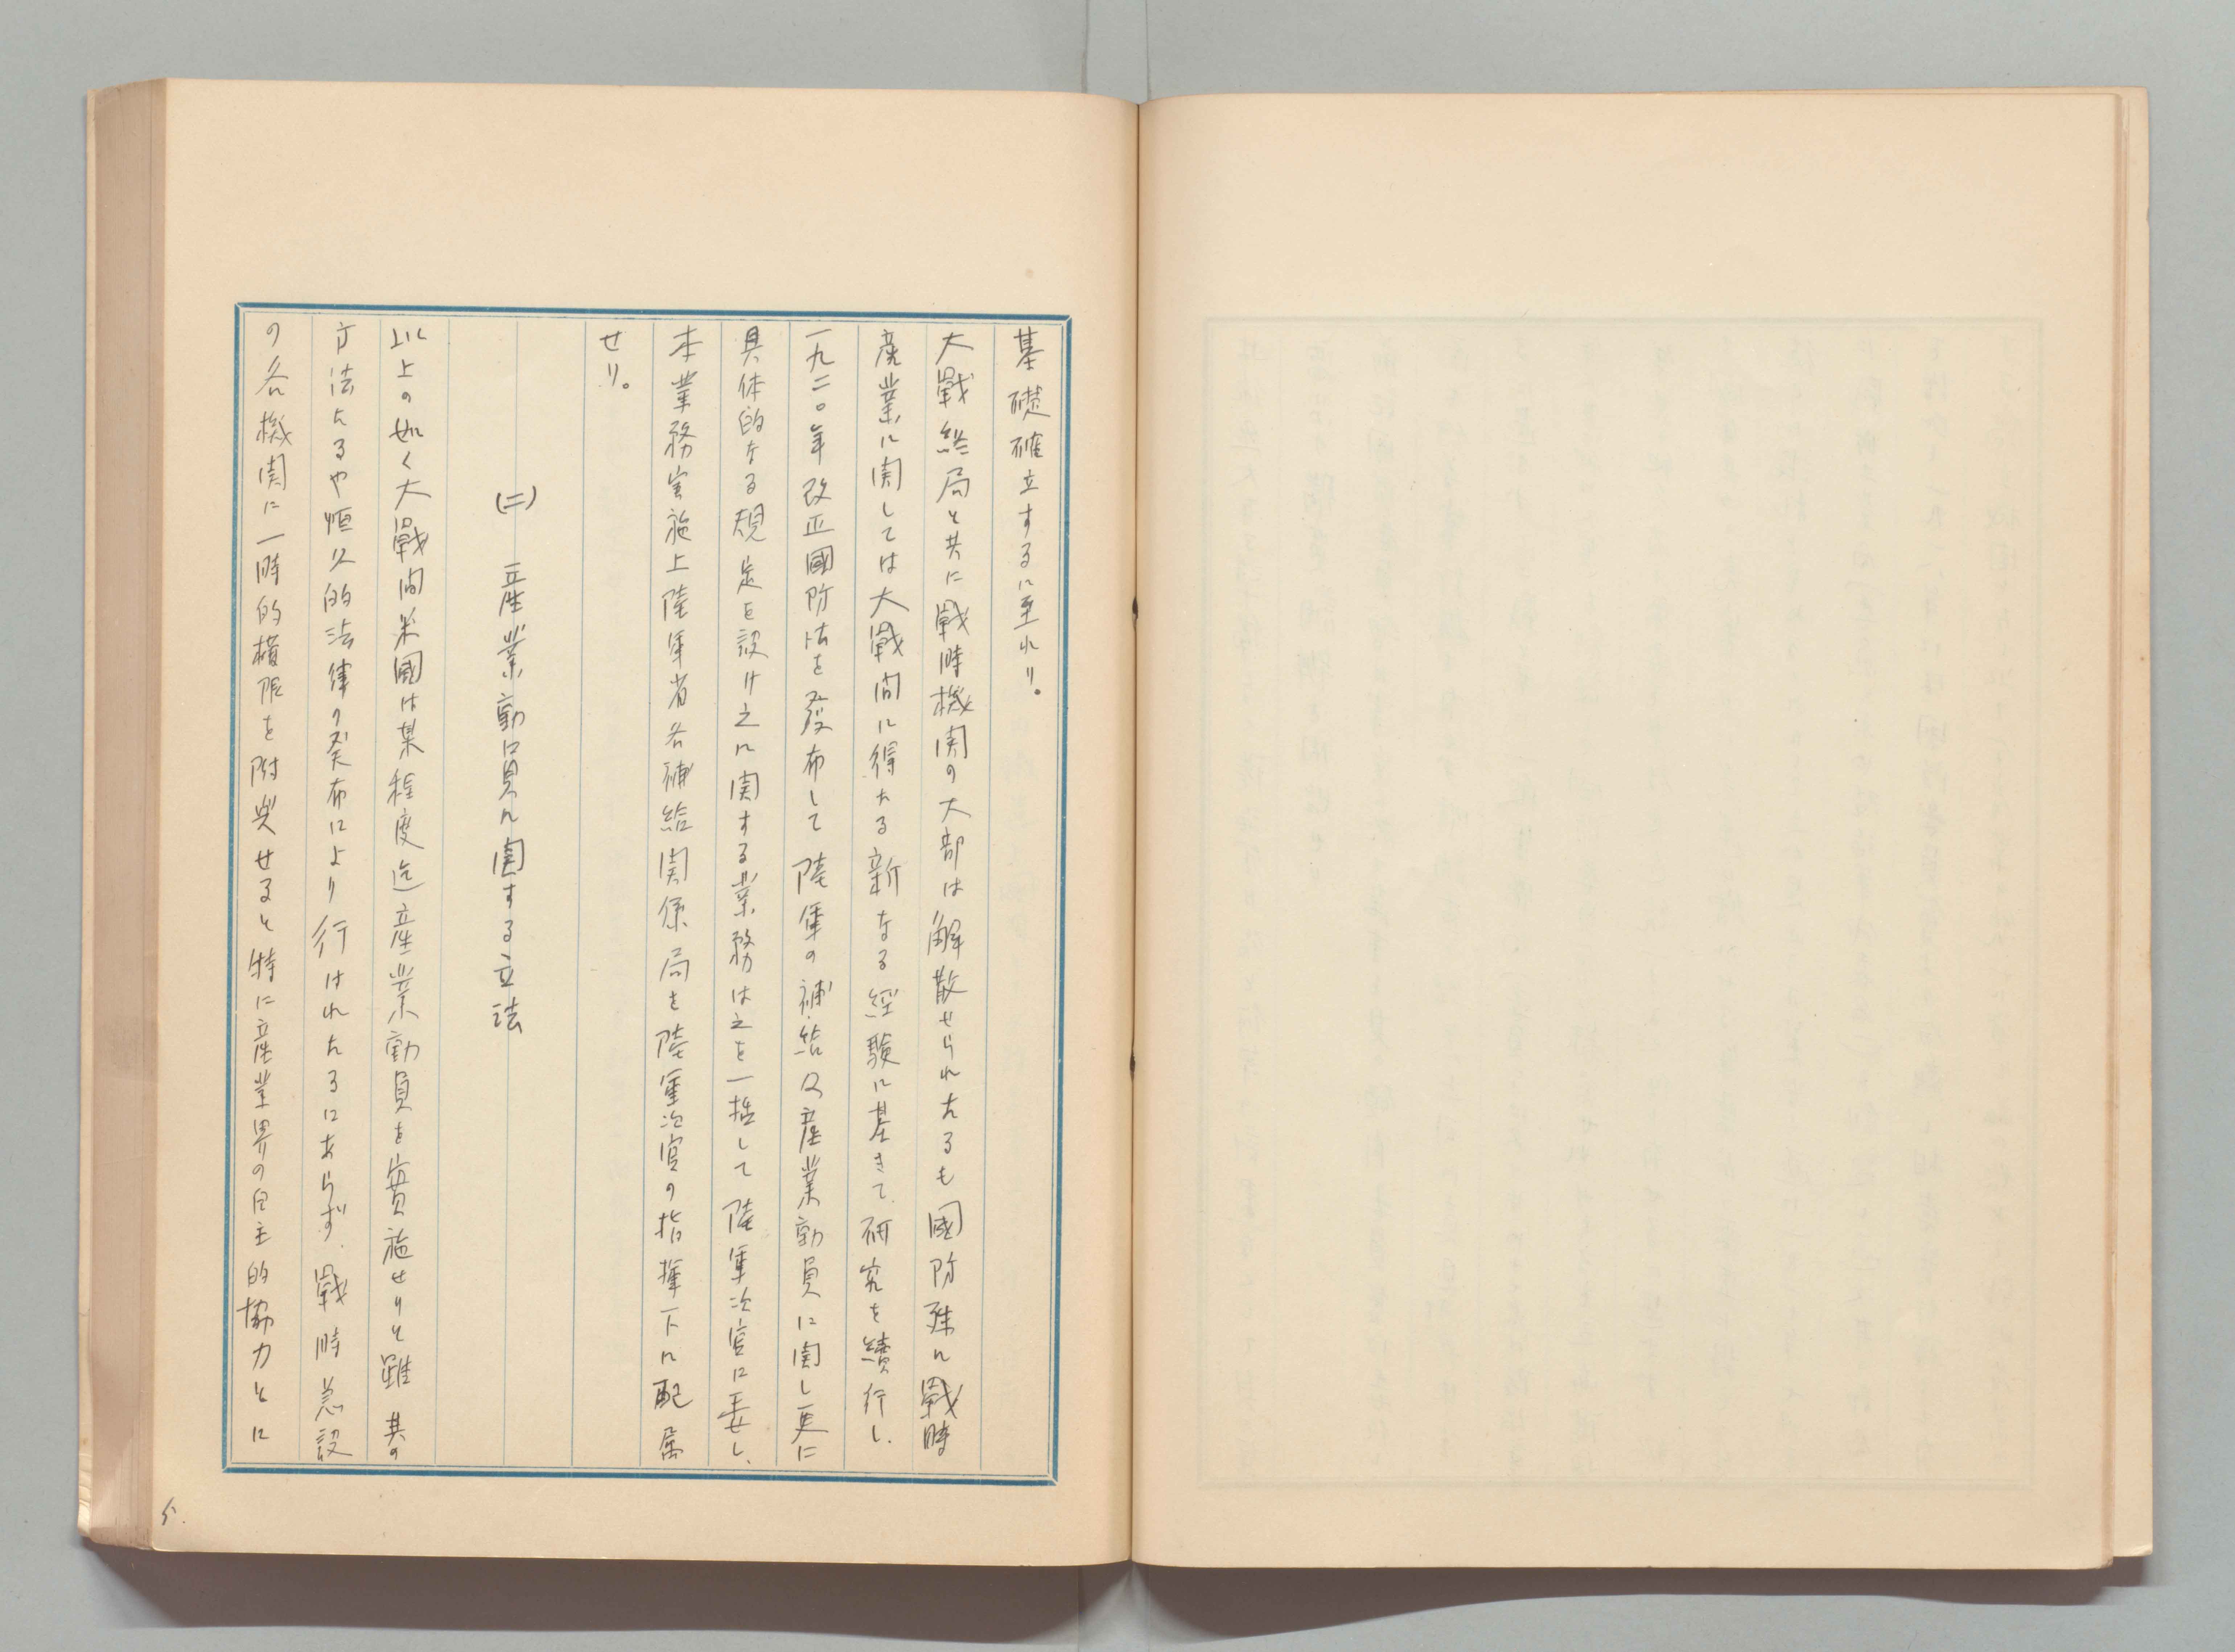 基礎確立するに至れり。
大戰終局と共に戰時機関の大部は解散せられたるも國防殊に戰時
産業に関しては大戰間に得たる新なる経験に基きて研究を續行し、
一九二〇年改正國防法を發布して陸軍の補給及産業動員に関し更に
具体的なる規定を設け之に関する業務は之を一括して陸軍次官に委し、
本業務実施上陸軍省各補給関係局を陸軍次官の指揮下に配属
せり。
(二) 産業動員に関する立法
以上の如く大戰間米國は某程度迄産業動員を實施せりと雖其の
方法たるや恒久的法律の発布により行はれたるにあらず、戰時急設
の各機関に一時的權限を附與せると特に産業界の自主的協力とに
5.